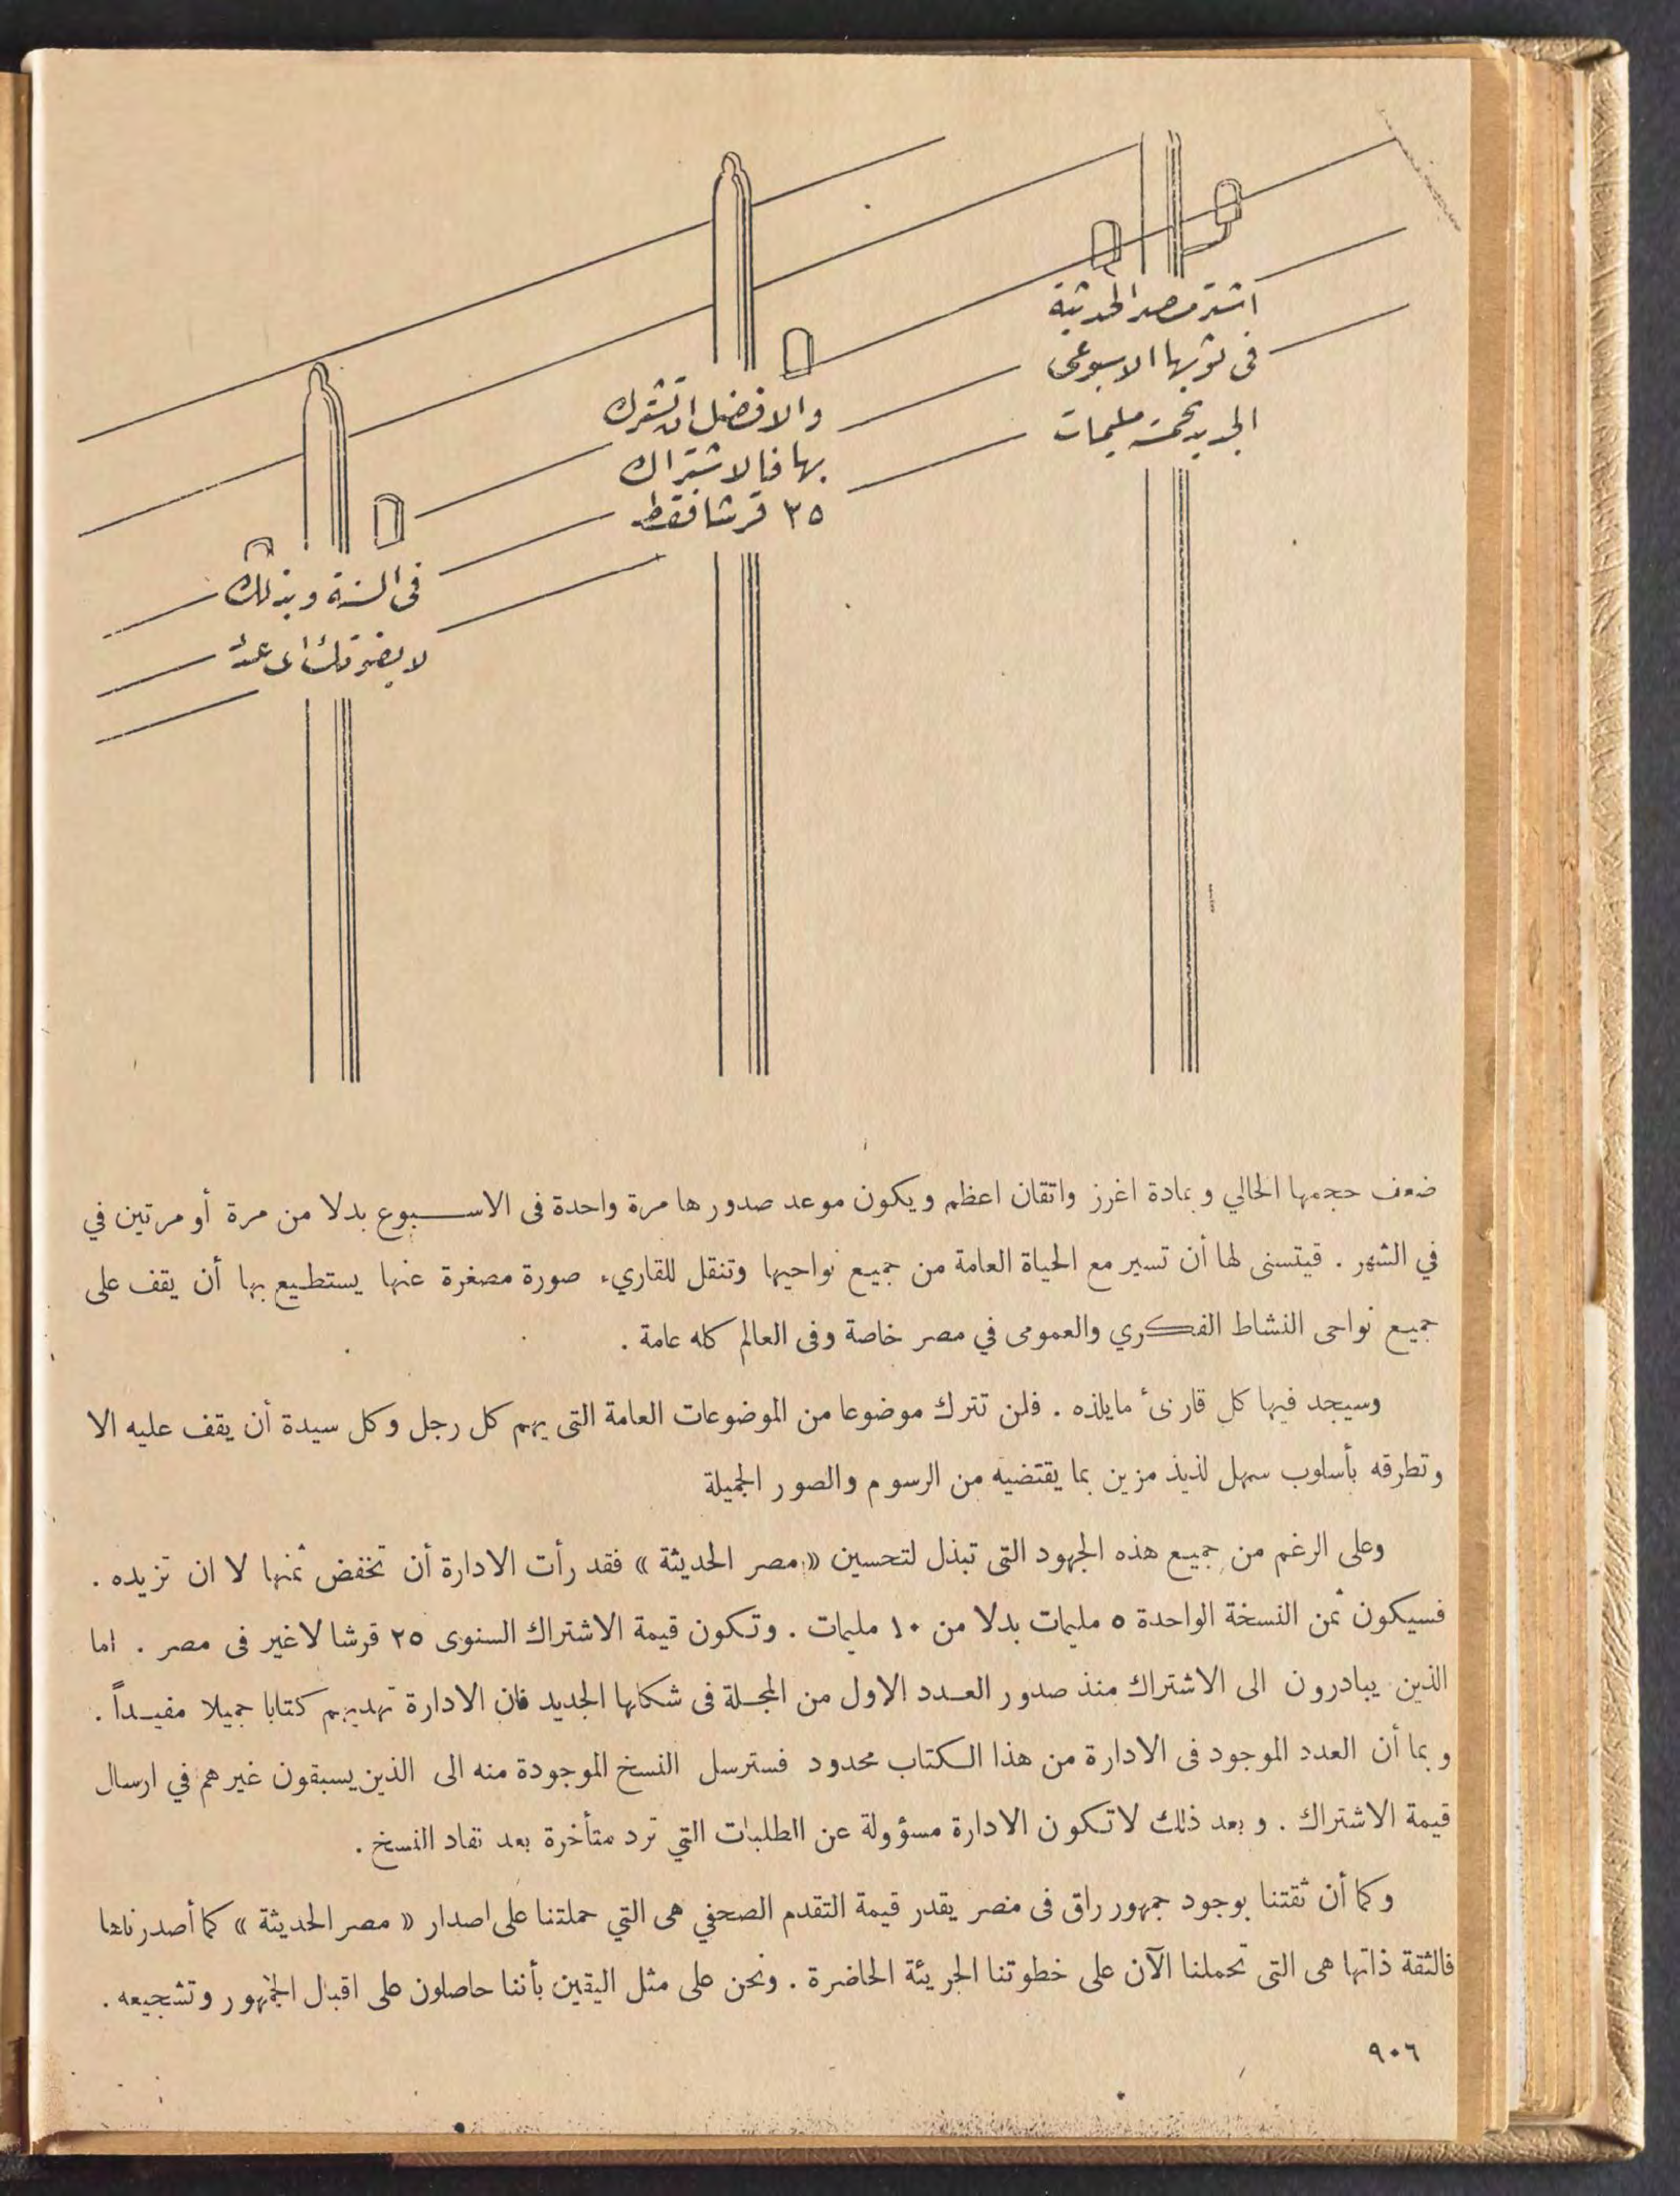 اشتر مصر الحديثة
في ثوبها الاسبوعى
الجديد بخمسة مليمات
والافضل ان تشترك
بها فالاشتراك
٢٥ قرشا فقط
فى السنة وبذلك
لا يفوتك اى عدد
ضعف حجمها الحالي وبمادة اغرز واتقان اعظم ويكون موعد صدورها مرة واحدة فى الاسبوع بدلا من مرة أو مرتين في
في الشهر . قيتسنى لها أن تسير مع الحياة العامة من جميع نواحيها وتنقل للقاريء صورة مصغرة عنها يستطيع بها أن يقف على
جميع نواحى النشاط الفكري والعمومى في مصر خاصة وفى العالم كله عامة .
وسيجد فيها كل قارىء مايلذه . فلن تترك موضوعا من الموضوعات العامة التى يهم كل رجل وكل سيدة أن يقف عليه الا
وتطرقه بأسلوب سهل لذيذ مزين بما يقتضيه من الرسوم والصور الجميلة
وعلى الرغم من جميع هذه الجهود التى تبذل لتحسين « مصر الحديثة » فقد رأت الادارة أن تخفض ثمنها لا ان تزيده .
فسيكون ثمن النسخة الواحدة ٥ مليمات بدلا من ١٠ مليمات . وتكون قيمة الاشتراك السنوى ٢٥ قرشا لاغير فى مصر . اما
الذين يبادرون الى الاشتراك منذ صدور العدد الاول من المجلة فى شكلها الجديد فان الادارة تهديهم كتابا جميلا مفيداً .
وبما أن العدد الموجود فى الادارة من هذا الكتاب محدود فسترسل النسخ الموجودة منه الى الذين يسبقون غيرهم في ارسال
قيمة الاشتراك . وبعد ذلك لاتكون الادارة مسؤولة عن الطلبات التي ترد متأخرة بعد نفاد النسخ .
وكما أن ثقتنا بوجود جمهور راق فى مصر يقدر قيمة التقدم الصحفي هى التي حملتنا على اصدار « مصر الحديثة » كما أصدرناها
فالثقة ذاتها هى التى تحملنا الآن على خطوتنا الجريئة الحاضرة . ونحن على مثل اليقين بأننا حاصلون على اقبال الجمهور وتشجيعه .
٩٠٦